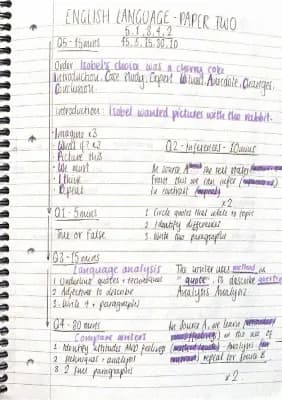 ENGLISH LANGUAGE - PAPER TWO
5, 1, 3, 4, 2
45, 5, 15, 30, 10
Q5 - 45mins
Order Isobel's choice was a cherry cake
Introduction, Case study, Expert
Conclusion
Introduction: Isobel wanted pictures with the rabbit.
Imagine x3
What if? x2
Picture this
We must
I think
Repeat
Q2 - Inferences - 10mins
In source A
From this we can infer
In contrast
x2
Q1 - 5mins
True or False
1 Circle quotes that relate to topic
2 Identify differences
3 Write two paragraphs
Q3 - 15mins
Language analysis
1 Underline quotes + techniques
2 Adjectives to describe
3 Write 4 + paragraphs
The writer uses method in
quote, to describe question
Analysis Analysis
Q4 - 30mins
Compare writers
1 Identify attitudes AND feelings
2 Techniques + analyse
3 2 full paragraphs
In Source A, we learn
in the use of
Analysis
repeat for Source B
x 2